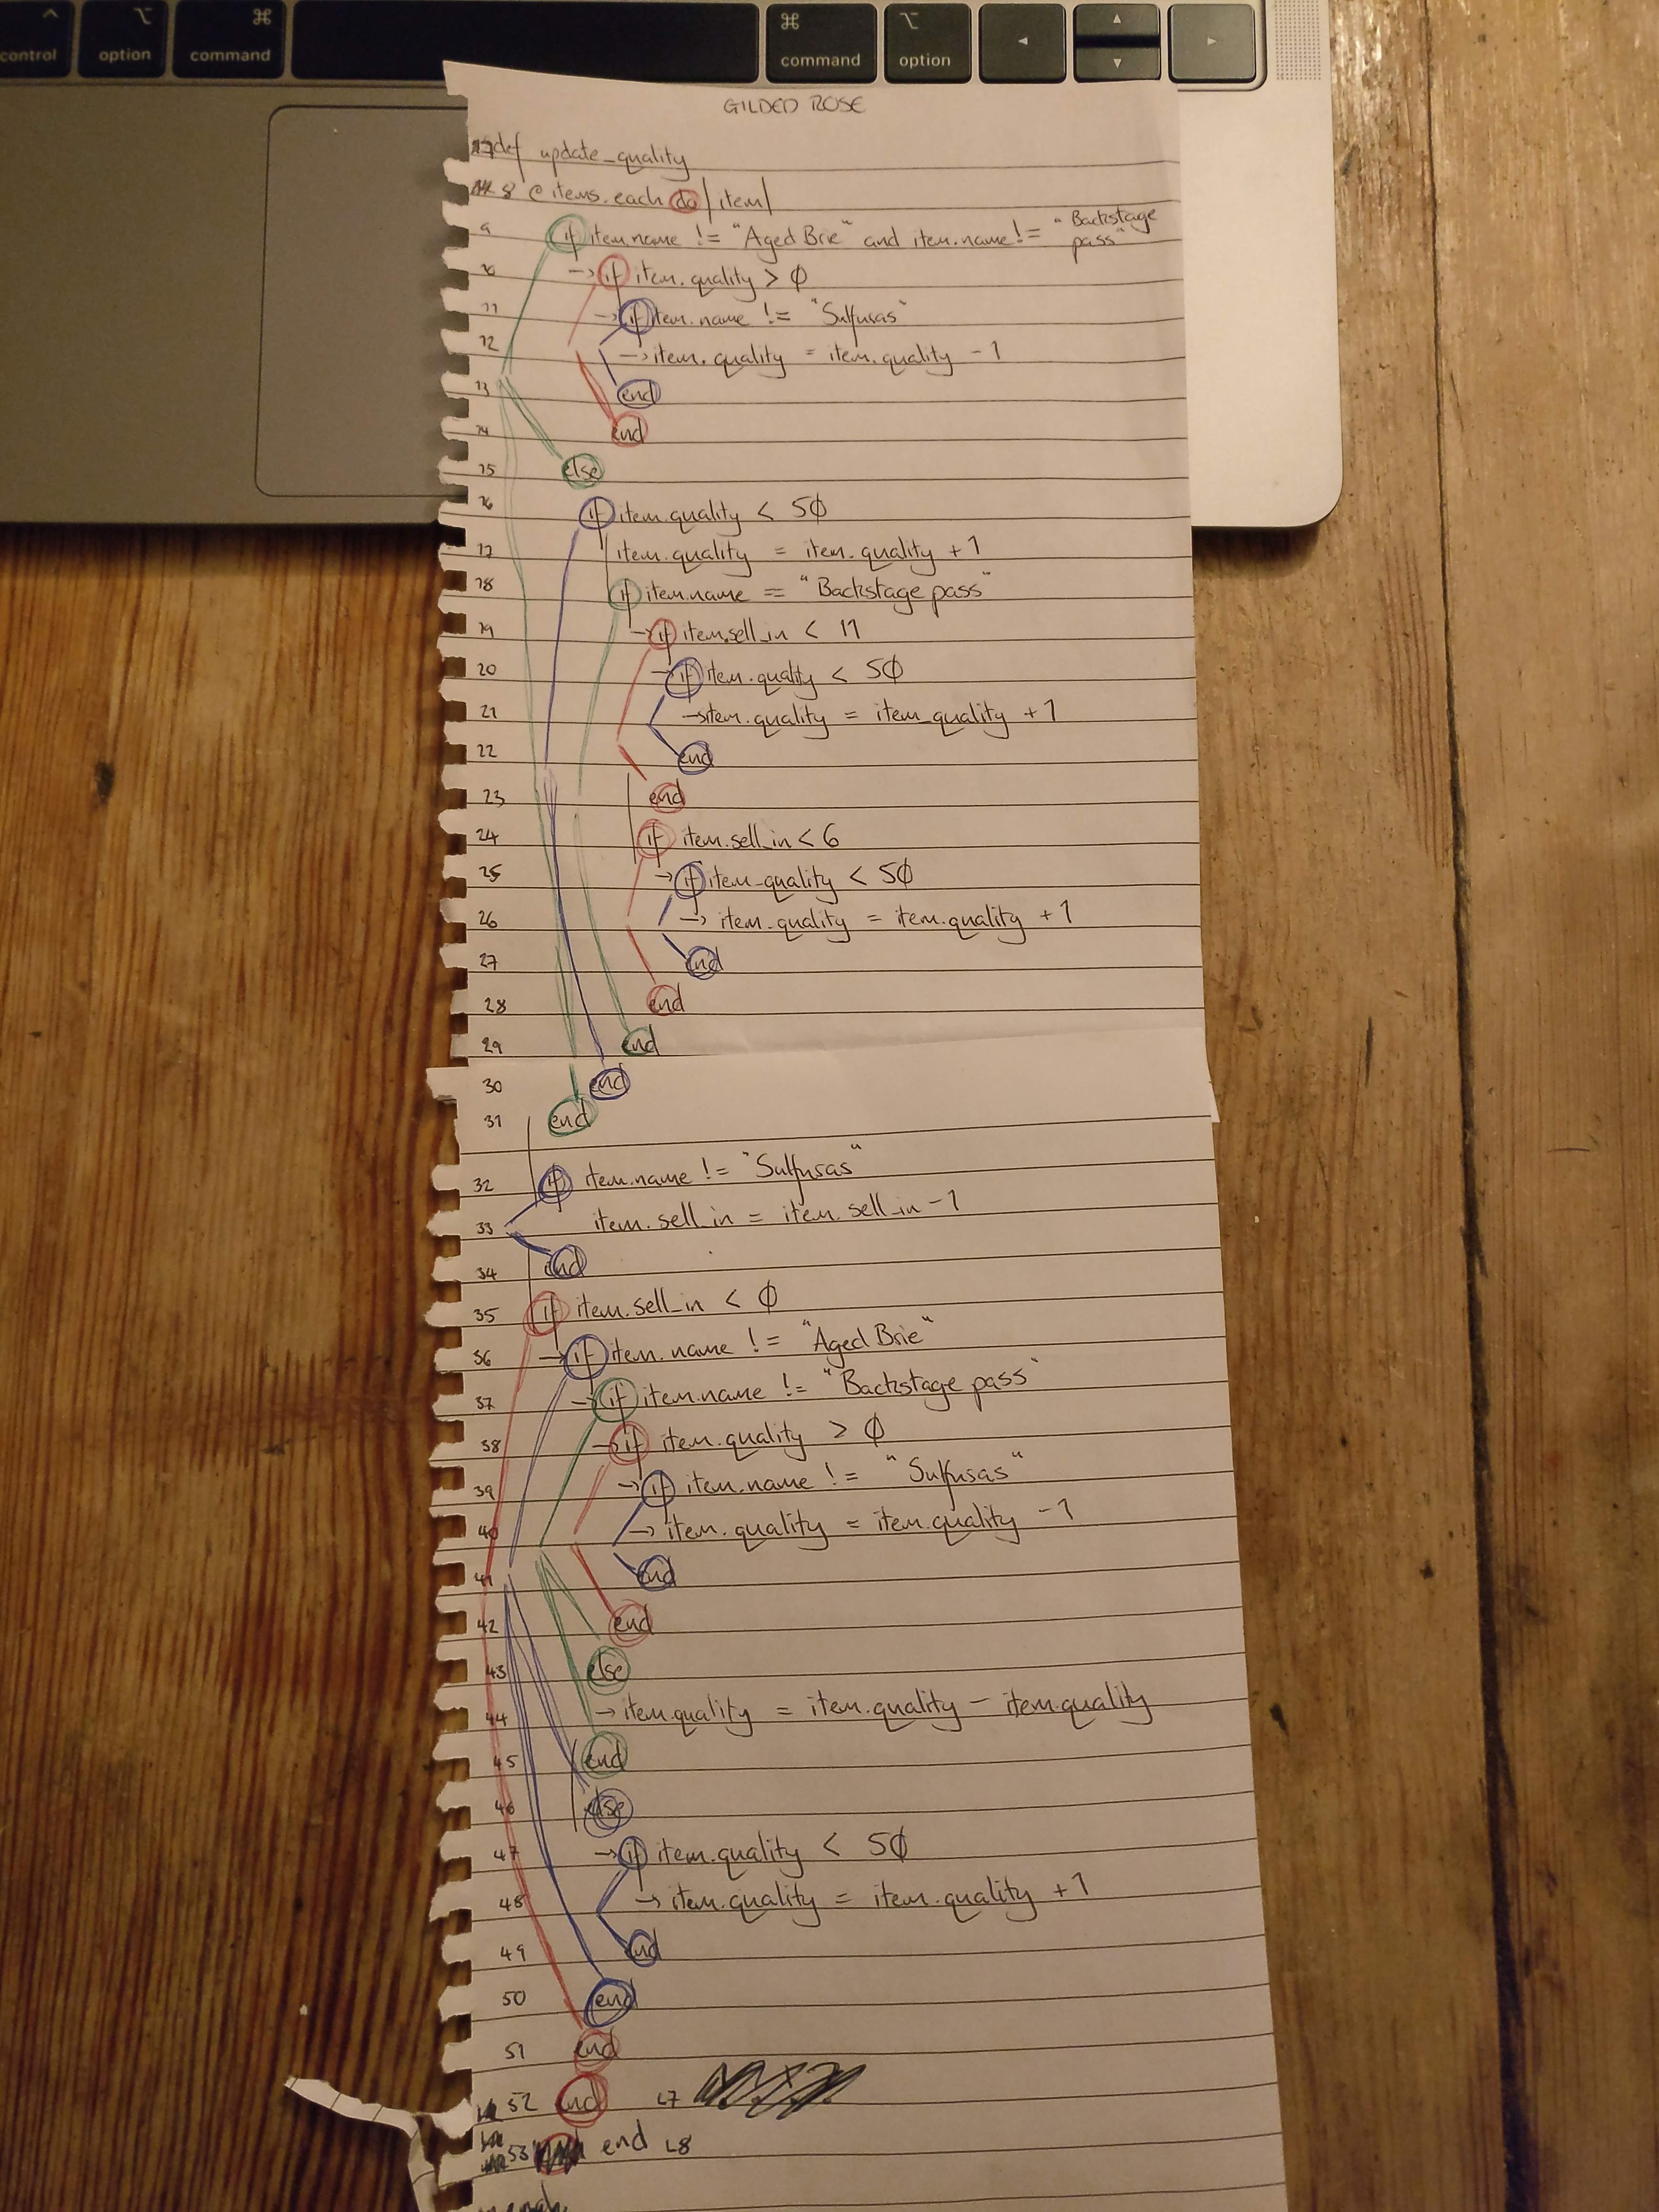 control option command command option
GILDED ROSE
7 def update_quality
8 @items.each do |item|
9 if item.name != "Aged Brie" and item.name != "Backstage
pass"
10 → if item.quality > 0
11 → if item.name != "Sulfusas"
12 → item.quality = item.quality - 1
13 end
14 end
15 else
16 if item.quality < 50
17 item.quality = item.quality + 1
18 if item.name == "Backstage pass"
19 → if item.sell_in < 11
20 → if item.quality < 50
21 → item.quality = item_quality + 1
22 end
23 end
24 if item.sell_in < 6
25 → if item_quality < 50
26 → item.quality = item.quality + 1
27 end
28 end
29 end
30 end
31 end
32 if item.name != "Sulfusas"
33 item.sell_in = item.sell_in - 1
34 end
35 if item.sell_in < 0
36 → if item.name != "Aged Brie"
37 → if item.name != "Backstage pass"
38 → if item.quality > 0
39 → if item.name != "Sulfusas"
40 → item.quality = item.quality - 1
41 end
42 end
43 else
44 → item.quality = item.quality - item.quality
45 end
46 else
47 → if item.quality < 50
48 → item.quality = item.quality + 1
49 end
50 end
51 end
52 end L7
53 end L8